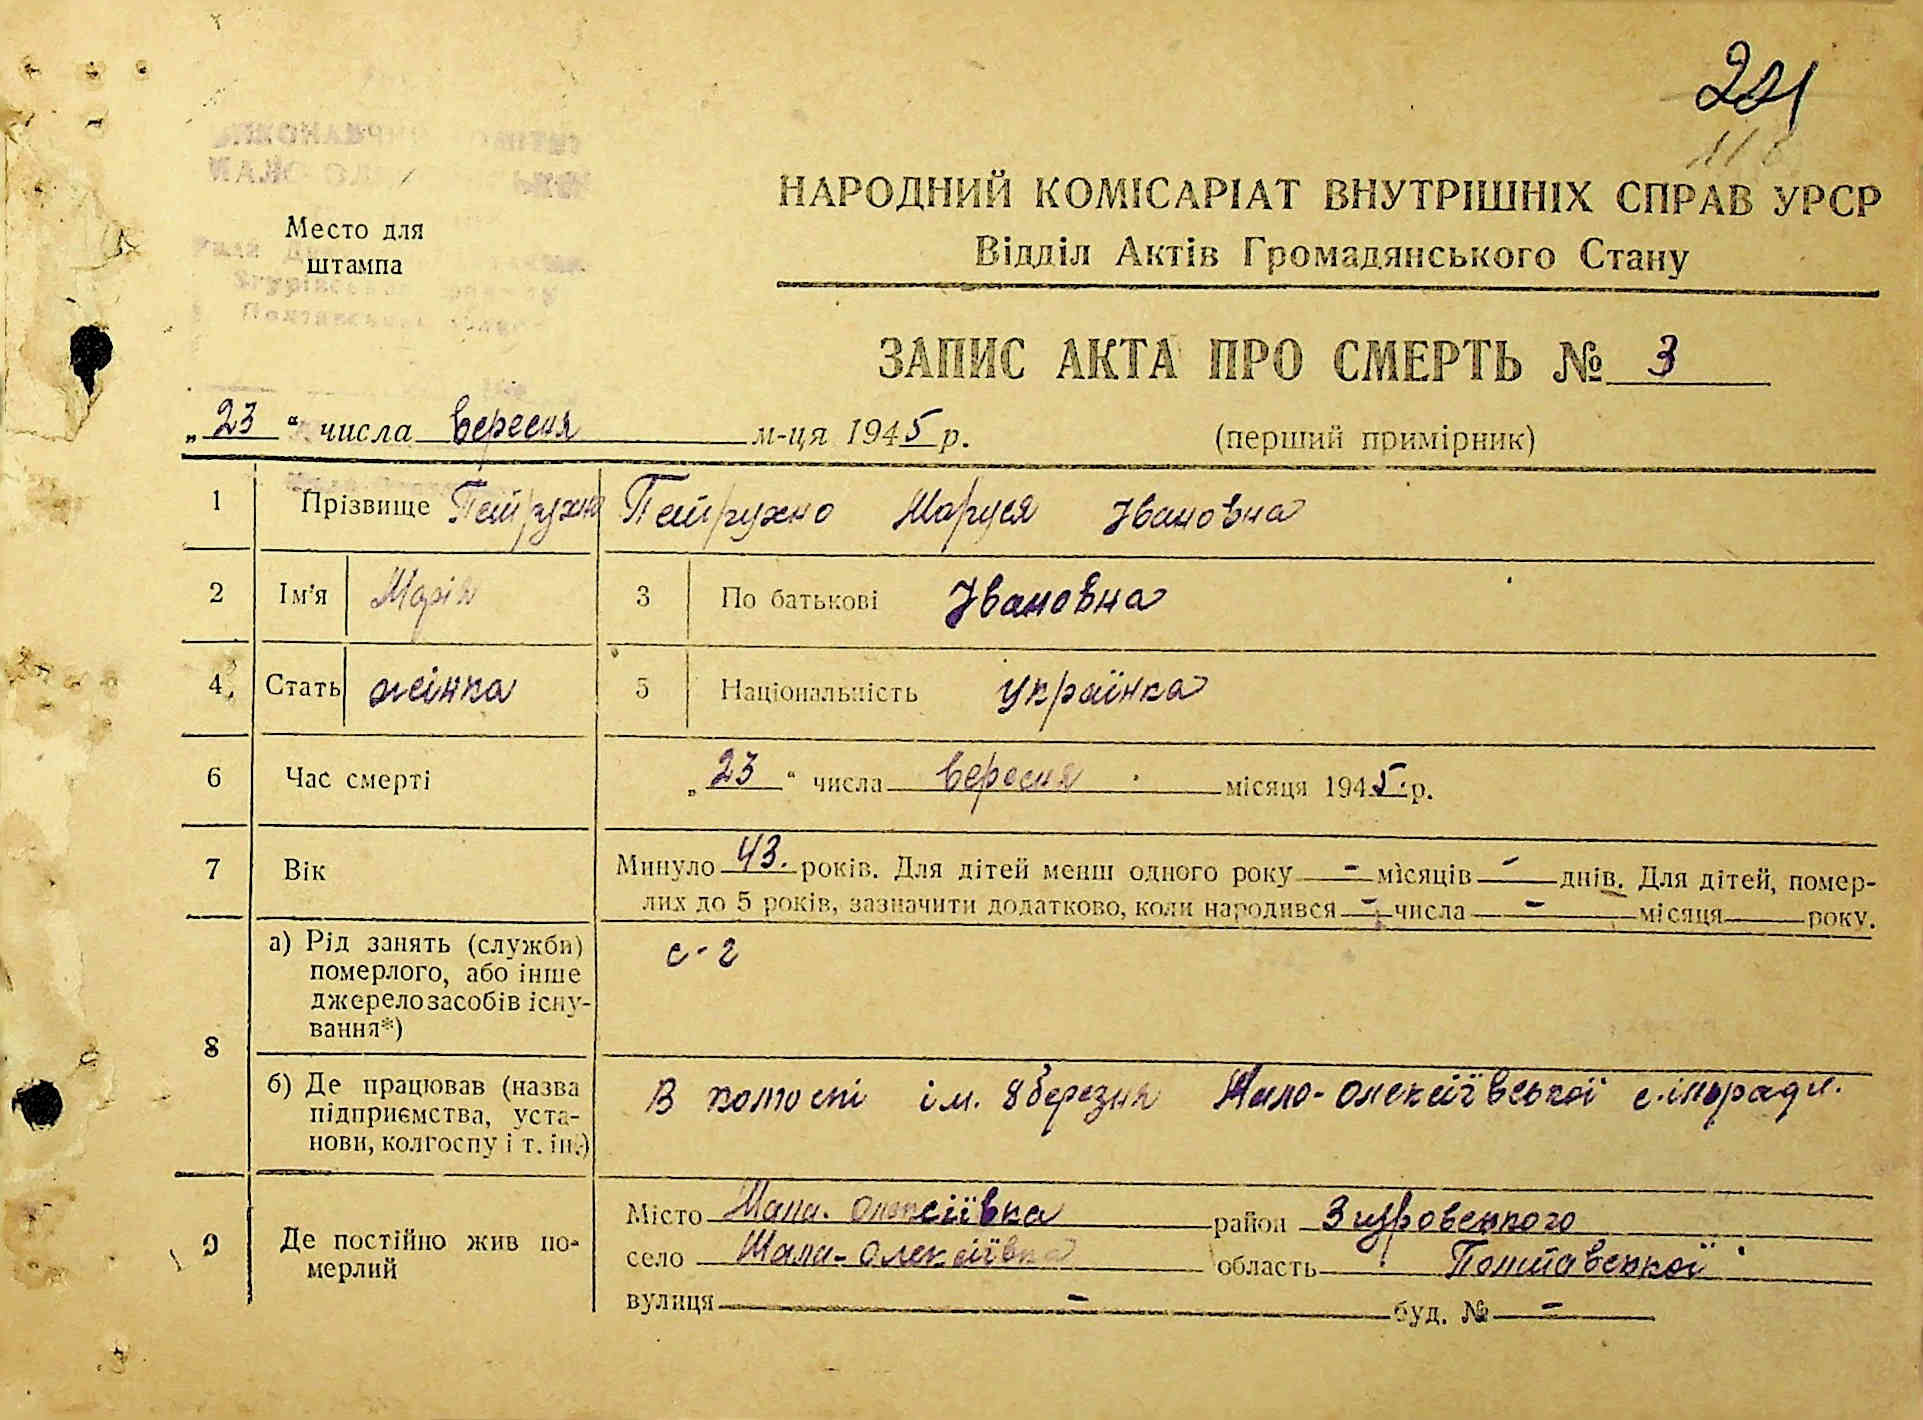 221
Место для
штампа
НАРОДНИЙ КОМІСАРІАТ ВНУТРІШНІХ СПРАВ УРСР
Відділ Актів Громадянського Стану
ЗАПИС АКТА ПРО СМЕРТЬ № 3
„23“ числа вересня м-ця 1945 р. (перший примірник)
1 Прізвище Петрухно Петрухно Маруся Івановна
2 Ім'я Марія 3 По батькові Івановна
4 Стать жінка 5 Національність українка
6 Час смерті „23“ числа вересня місяця 1945 р.
7 Вік Минуло 43. років. Для дітей менш одного року - місяців - днів. Для дітей, помер-
лих до 5 років, зазначити додатково, коли народився - числа - місяця року.
8 а) Рід занять (служби) с-г
померлого, або інше
джерело засобів існу-
вання*)
б) Де працював (назва В колгоспі ім. 8 березня Мало-олексіївської сільради.
підприємства, уста-
нови, колгоспу і т. ін.)
9 Де постійно жив по-
мерлий
Місто Мала-олексіївка район Згуровського
село Мала-олексіївка область Полтавської
вулиця - буд. № -